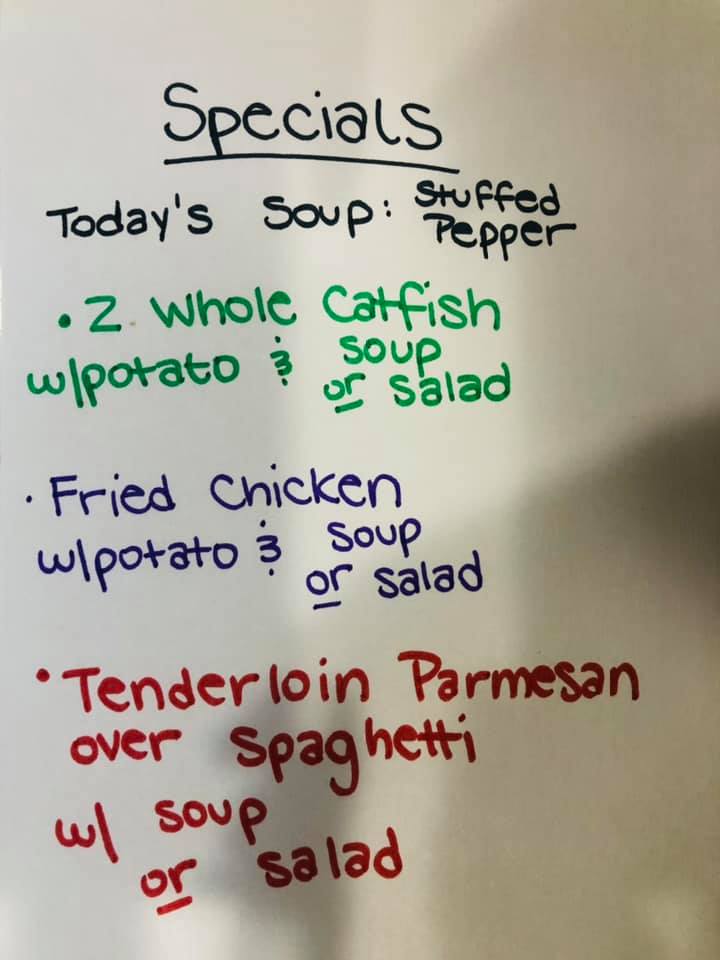 Specials
Today's Soup: Stuffed
Pepper
• 2 Whole Catfish
w/potato & soup
or salad
• Fried Chicken
w/potato & soup
or salad
• Tenderloin Parmesan
over spaghetti
w/ soup
or salad